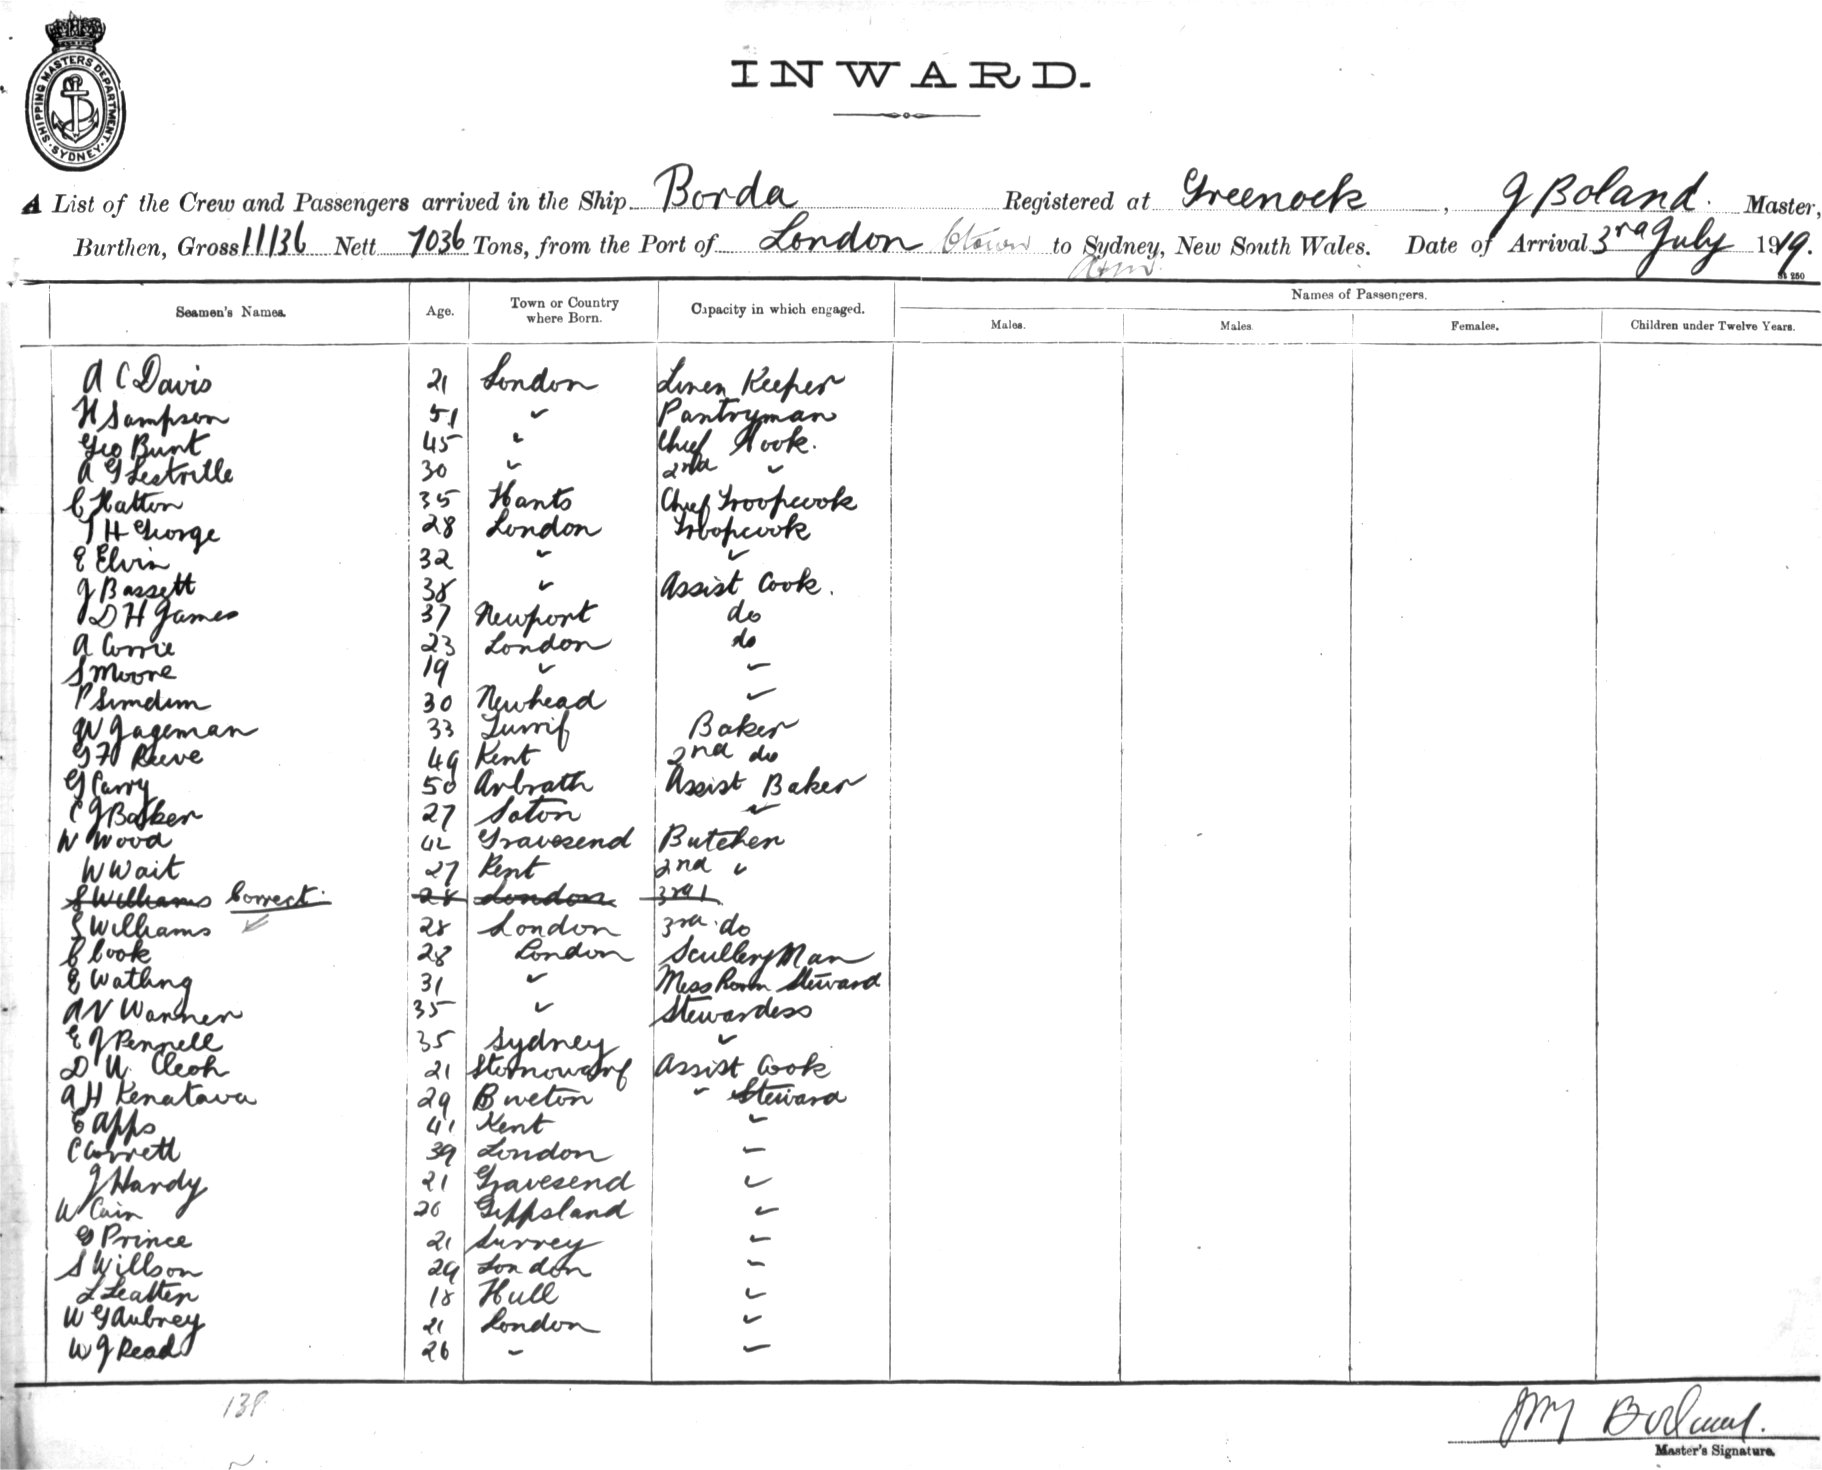 SHIPPING MASTERS DEPARTMENT. SYDNEY.
INWARD.
A List of the Crew and Passengers arrived in the Ship Borda Registered at Greenock, J Boland. Master,
Burthen, Gross 11136 Nett 7036 Tons, from the Port of London to Sydney, New South Wales. Date of Arrival 3rd July 1919.
Seamen's Names. Age. Town or Country where Born. Capacity in which engaged. Names of Passengers.
Males. Males. Females. Children under Twelve Years.
A C Davis 21 London Linen Keeper
H Sampson 51 " Pantryman
Geo Bunt 45 " Chief Cook.
A G Lestrille 30 " 2nd "
C Hatton 35 Hants Chief Troopcook
T H George 28 London Troopcook
E Elvin 32 " "
J Bassett 38 " Assist Cook.
D H James 37 Newport do
A Corrie 23 London do
S Moore 19 " "
P Simdim 30 Newhead "
W Jageman 33 Turrif Baker
G F Reeve 49 Kent 2nd do
G Carry 50 Arbrath Assist Baker
C J Barker 27 Soton "
W Wood 42 Gravesend Butcher
W Wait 27 Kent 2nd "
S Williams Correct 28 London 3rd
S Williams 28 London 3rd do
C Cook 28 London Scullery Man
E Watling 31 " Mess Room Steward
A V Wanner 35 " Stewardess
E J Pennell 35 Sydney "
D 21 Assist Cook
A H Kenatava 29 " Steward
E Apps 41 Kent "
C Corrett 39 London "
J Hardy 21 Gravesend "
W Cain 20 Gippsland "
G Prince 21 Surrey "
S Willson 29 London "
L Leatten 18 Hull "
W G Aubrey 21 London "
W J Read 26 " "
138
Boland.
Master's Signature.